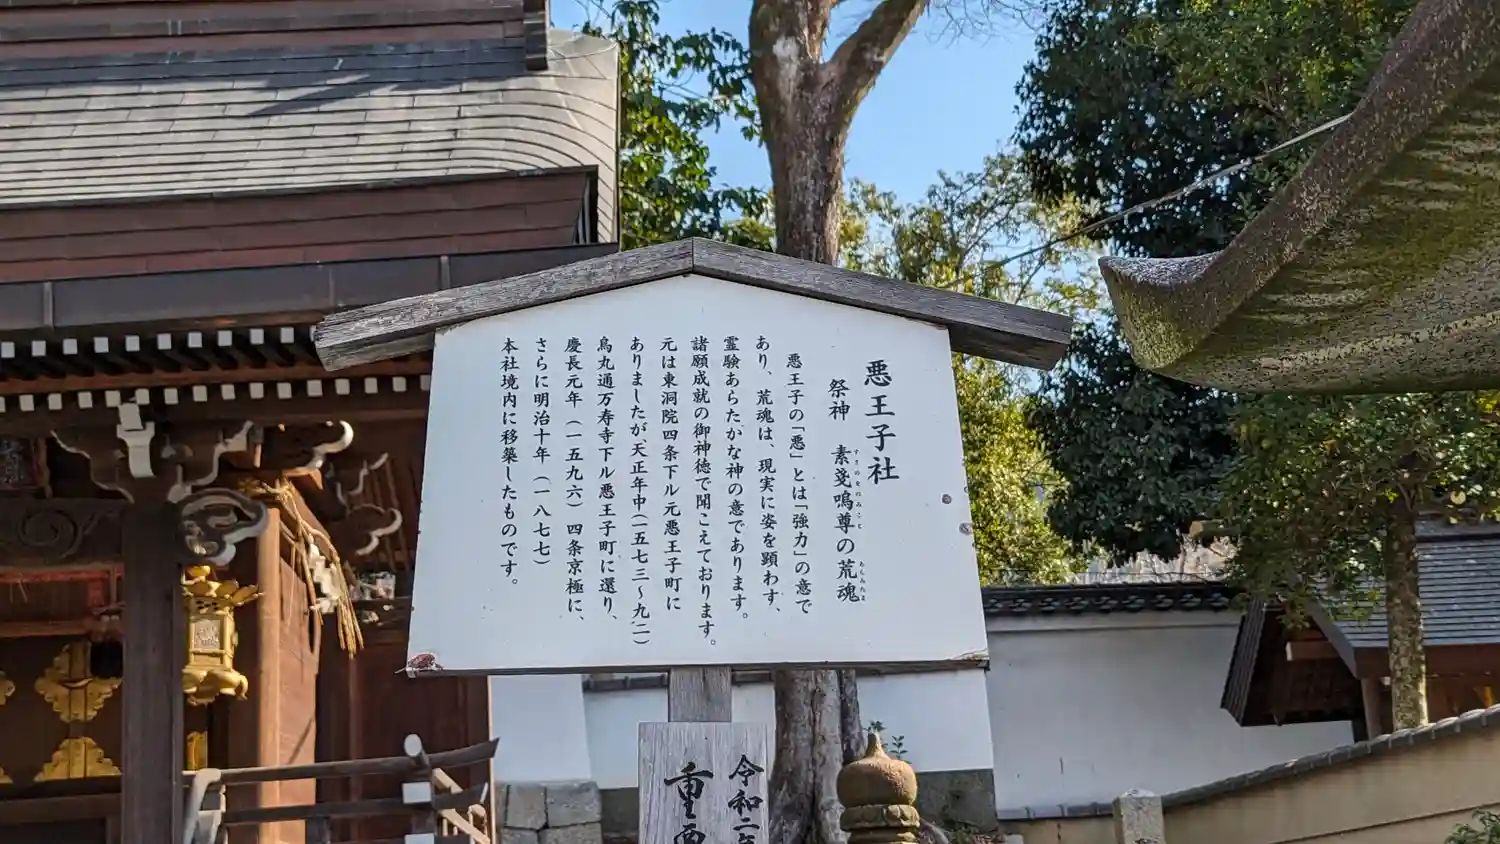 悪王子社
祭神 素戔嗚尊の荒魂
すさのをのみこと
あらみたま
悪王子の「悪」とは「強力」の意で
あり、荒魂は、現実に姿を顕わす、
霊験あらたかな神の意であります。
諸願成就の御神徳で聞こえております。
元は東洞院四条下ル元悪王子町に
ありましたが、天正年中(一五七三〜九二)
烏丸通万寿寺下ル悪王子町に還り、
慶長元年(一五九六)四条京極に、
さらに明治十年(一八七七)
本社境内に移築したものです。
令和二年
重要